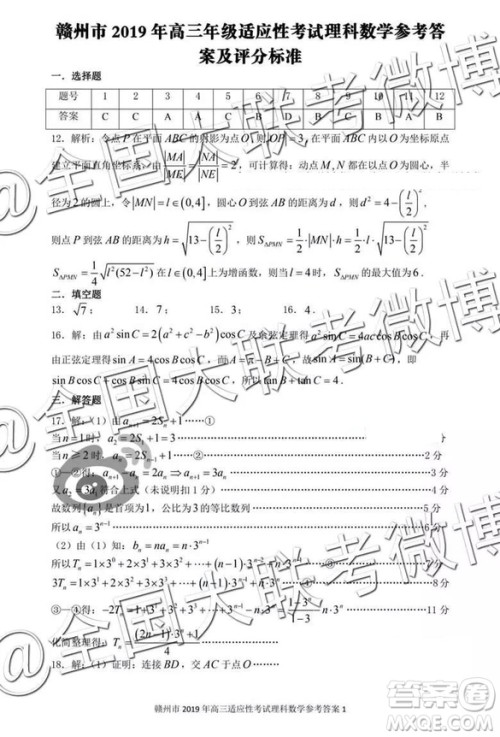 赣州市 2019 年高三年级适应性考试理科数学参考答
案及评分标准
一．选择题
题号 1 2 3 4 5 6 7 8 9 10 11 12
答案 C C A A B B
12. 解析：令点 P 在平面 ABC 的射影为点 O，则 PO=3，以 O 为坐标原点
建立平面直角坐标系，由 |MA|/|ME| = |NA|/|NE| = 2，可计算得：动点 M,N 都在以 O 为圆心，半
径为 2 的圆上，令 |MN|=l∈(0,4]，圆心 O 到弦 AB 的距离为 d，则 d²=4-(l/2)²，
则点 P 到弦 AB 的距离为 h=√(13-(l/2)²)，S△PMN=1/2·|MN|·h=1/2·l·√(13-(l/2)²)，
S△PMN=1/4√(l²(52-l²)) 在 l∈(0,4] 上为增函数，于是当 l=4 时，S△PMN 的最大值为 6．
二．填空题
13．√7； 14．7； 15． 16．4．
16．解：由 a² sin C=2(a²+c²-b²)cos C 及余弦定理得 a² sin C=4ac cos B cos C，再
由正弦定理得 sin A=4cos B cos C，所以 sin A=sin(B+C)，即
sin B cos C+cos B sin C=4cos B cos C，所以 tan B+tan C=4．
三．解答题
17．解：（1）由 aₙ₊₁=2Sₙ+1 ……①
当 n=1 时，a₂=2S₁+1=3
当 n≥2 时，aₙ=2Sₙ₋₁+1 ……② 2 分
①—②得：aₙ₊₁-aₙ=2aₙ⇒aₙ₊₁=3aₙ 3 分
又 a₂=3a₁ 符合上式（未说明扣 1 分） 4 分
故数列{aₙ}是首项为1，公比为 3 的等比数列 5 分
所以 aₙ=3ⁿ⁻¹ 6 分
（2）由（1）知：bₙ=naₙ=n·3ⁿ⁻¹ 7 分
所以 Tₙ=1×3⁰+2×3¹+3×3²+…+n·3ⁿ⁻¹ ……③
3Tₙ=1×3¹+2×3²+3×3³+…+n·3ⁿ ……④ 8 分
③—④得：-2Tₙ=1+3¹+3²+3³+…+3ⁿ⁻¹-n·3ⁿ=(1-3ⁿ)/(1-3)-n·3ⁿ 11 分
化简整理得：Tₙ=((2n-1)·3ⁿ+1)/4
18．解：（1）证明：连接 BD，交 AC 于点 O
赣州市 2019 年高三适应性考试理科数学参考答案 1
@全国大联考微博
@全国大联考微博
@全国大联考微博